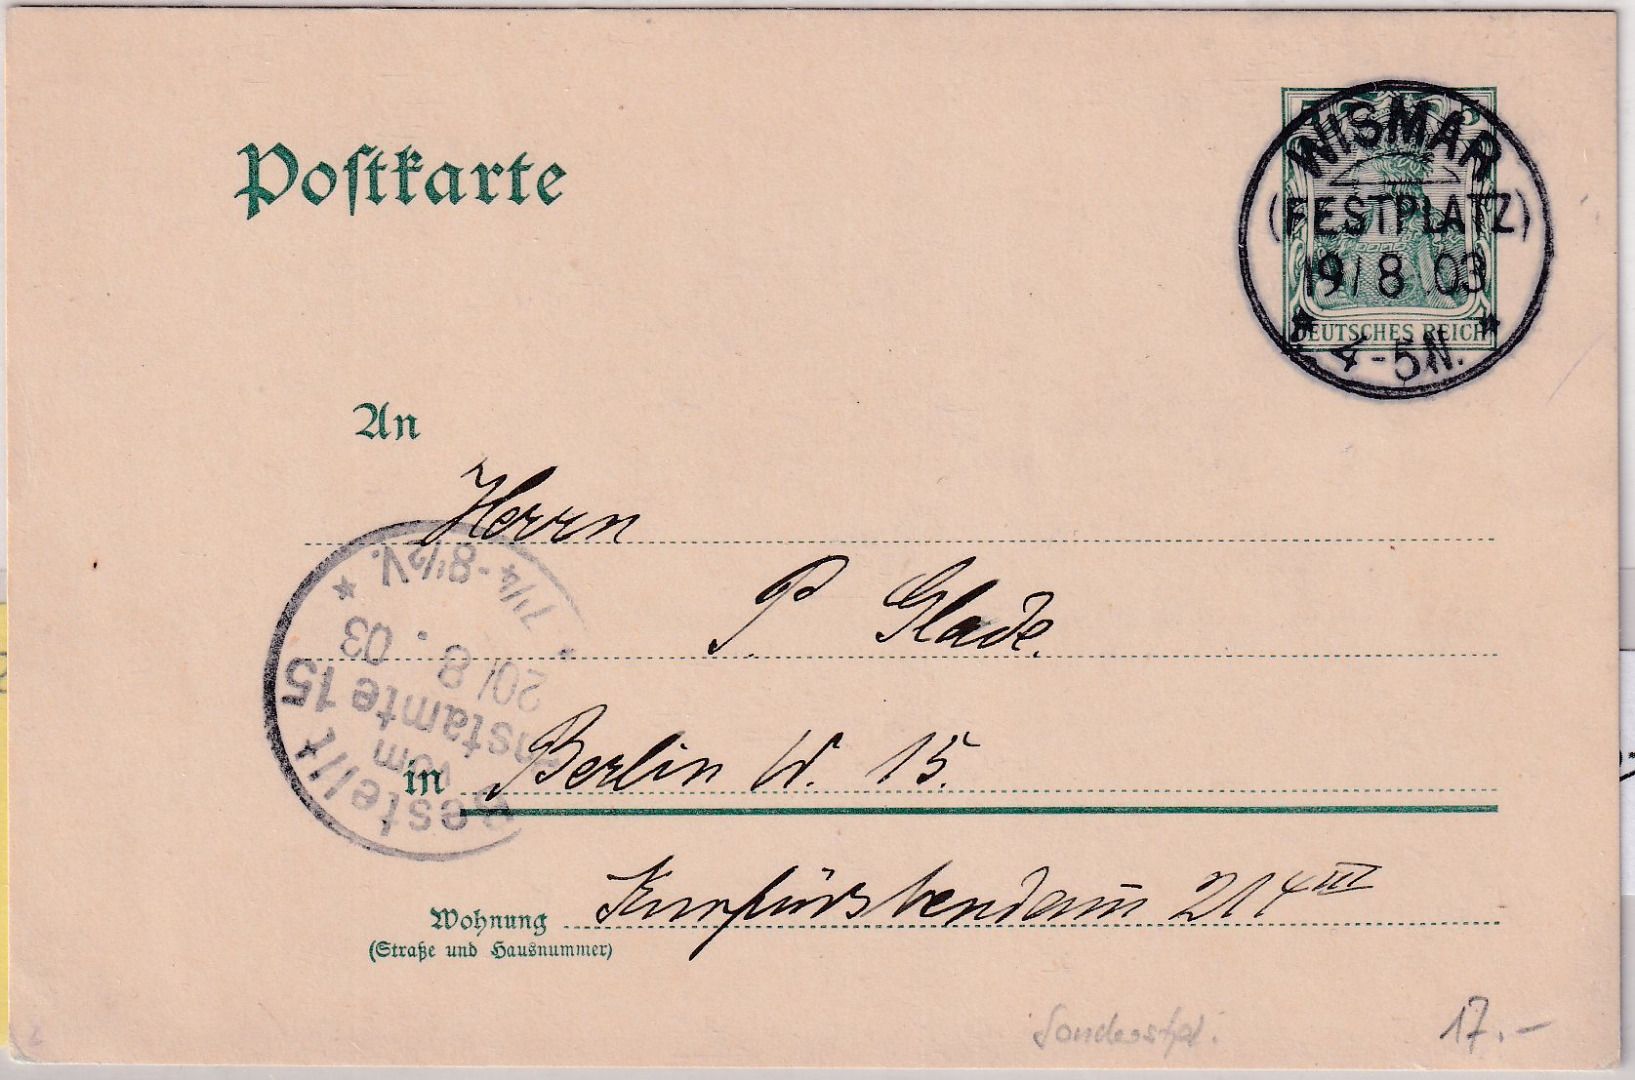 Postkarte
WISMAR
(FESTPLATZ)
19/8 03
* 4-5N. *
DEUTSCHES REICH
An
Herrn
P Glade.
in Berlin W. 15.
Wohnung Kurfürstendam̄ 214 III
(Straße und Hausnummer)
Bestellt
vom
Postamte 15
20/8. 03
* 7¼-8½V. *
Sonderstpl.
17.-